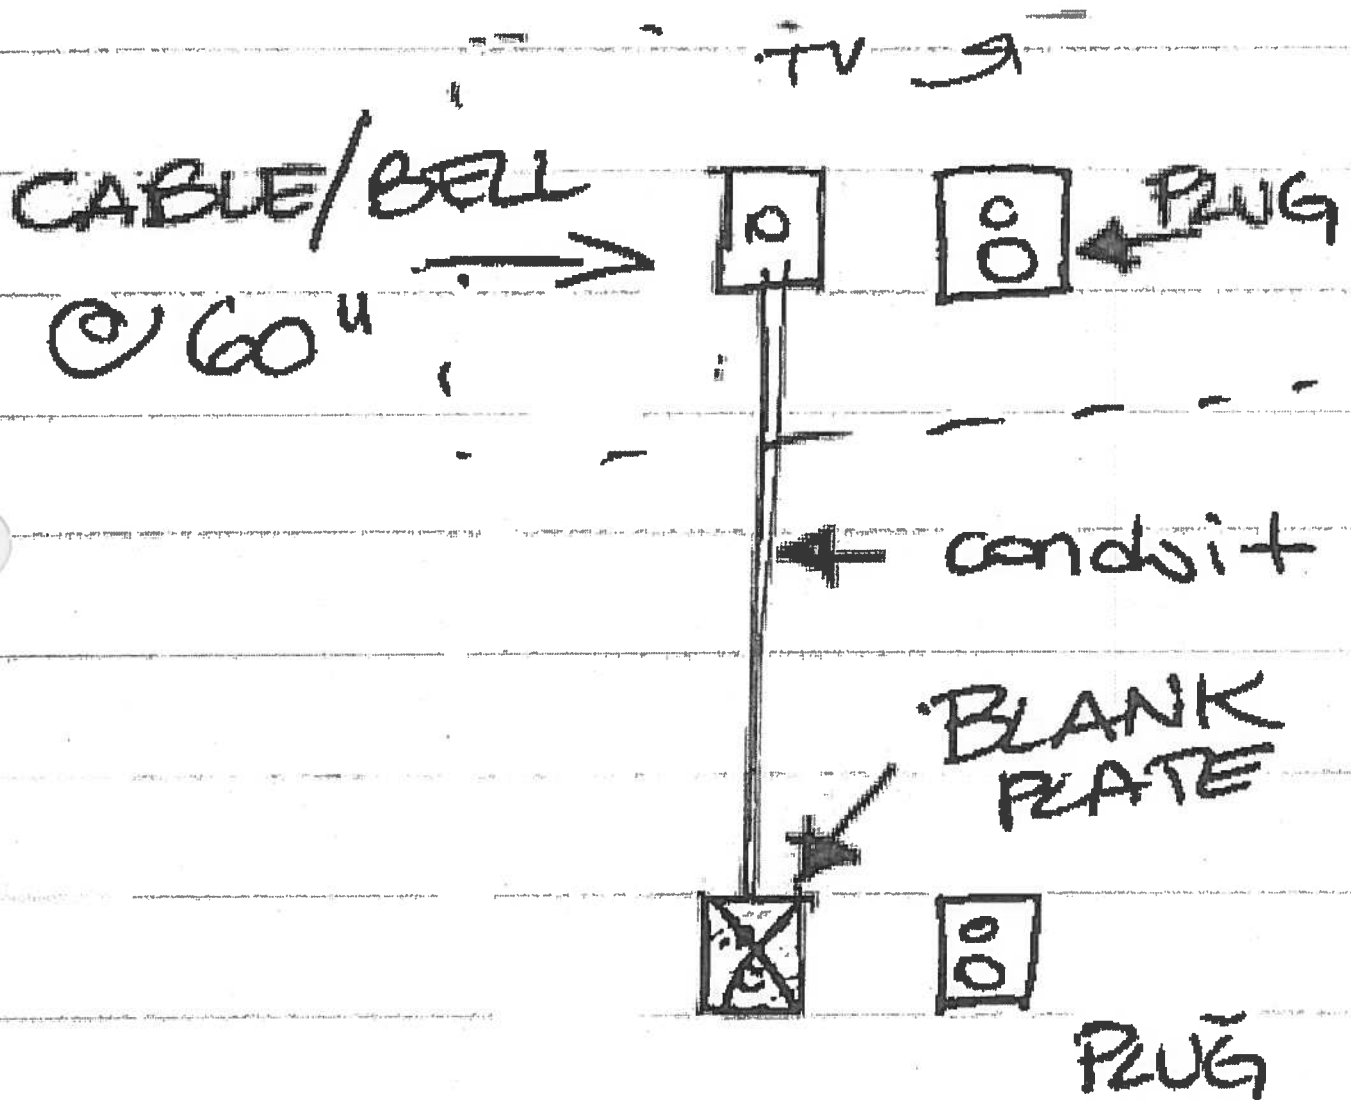 TV
CABLE/BELL
PLUG
@ 60"
conduit
BLANK
PLATE
PLUG